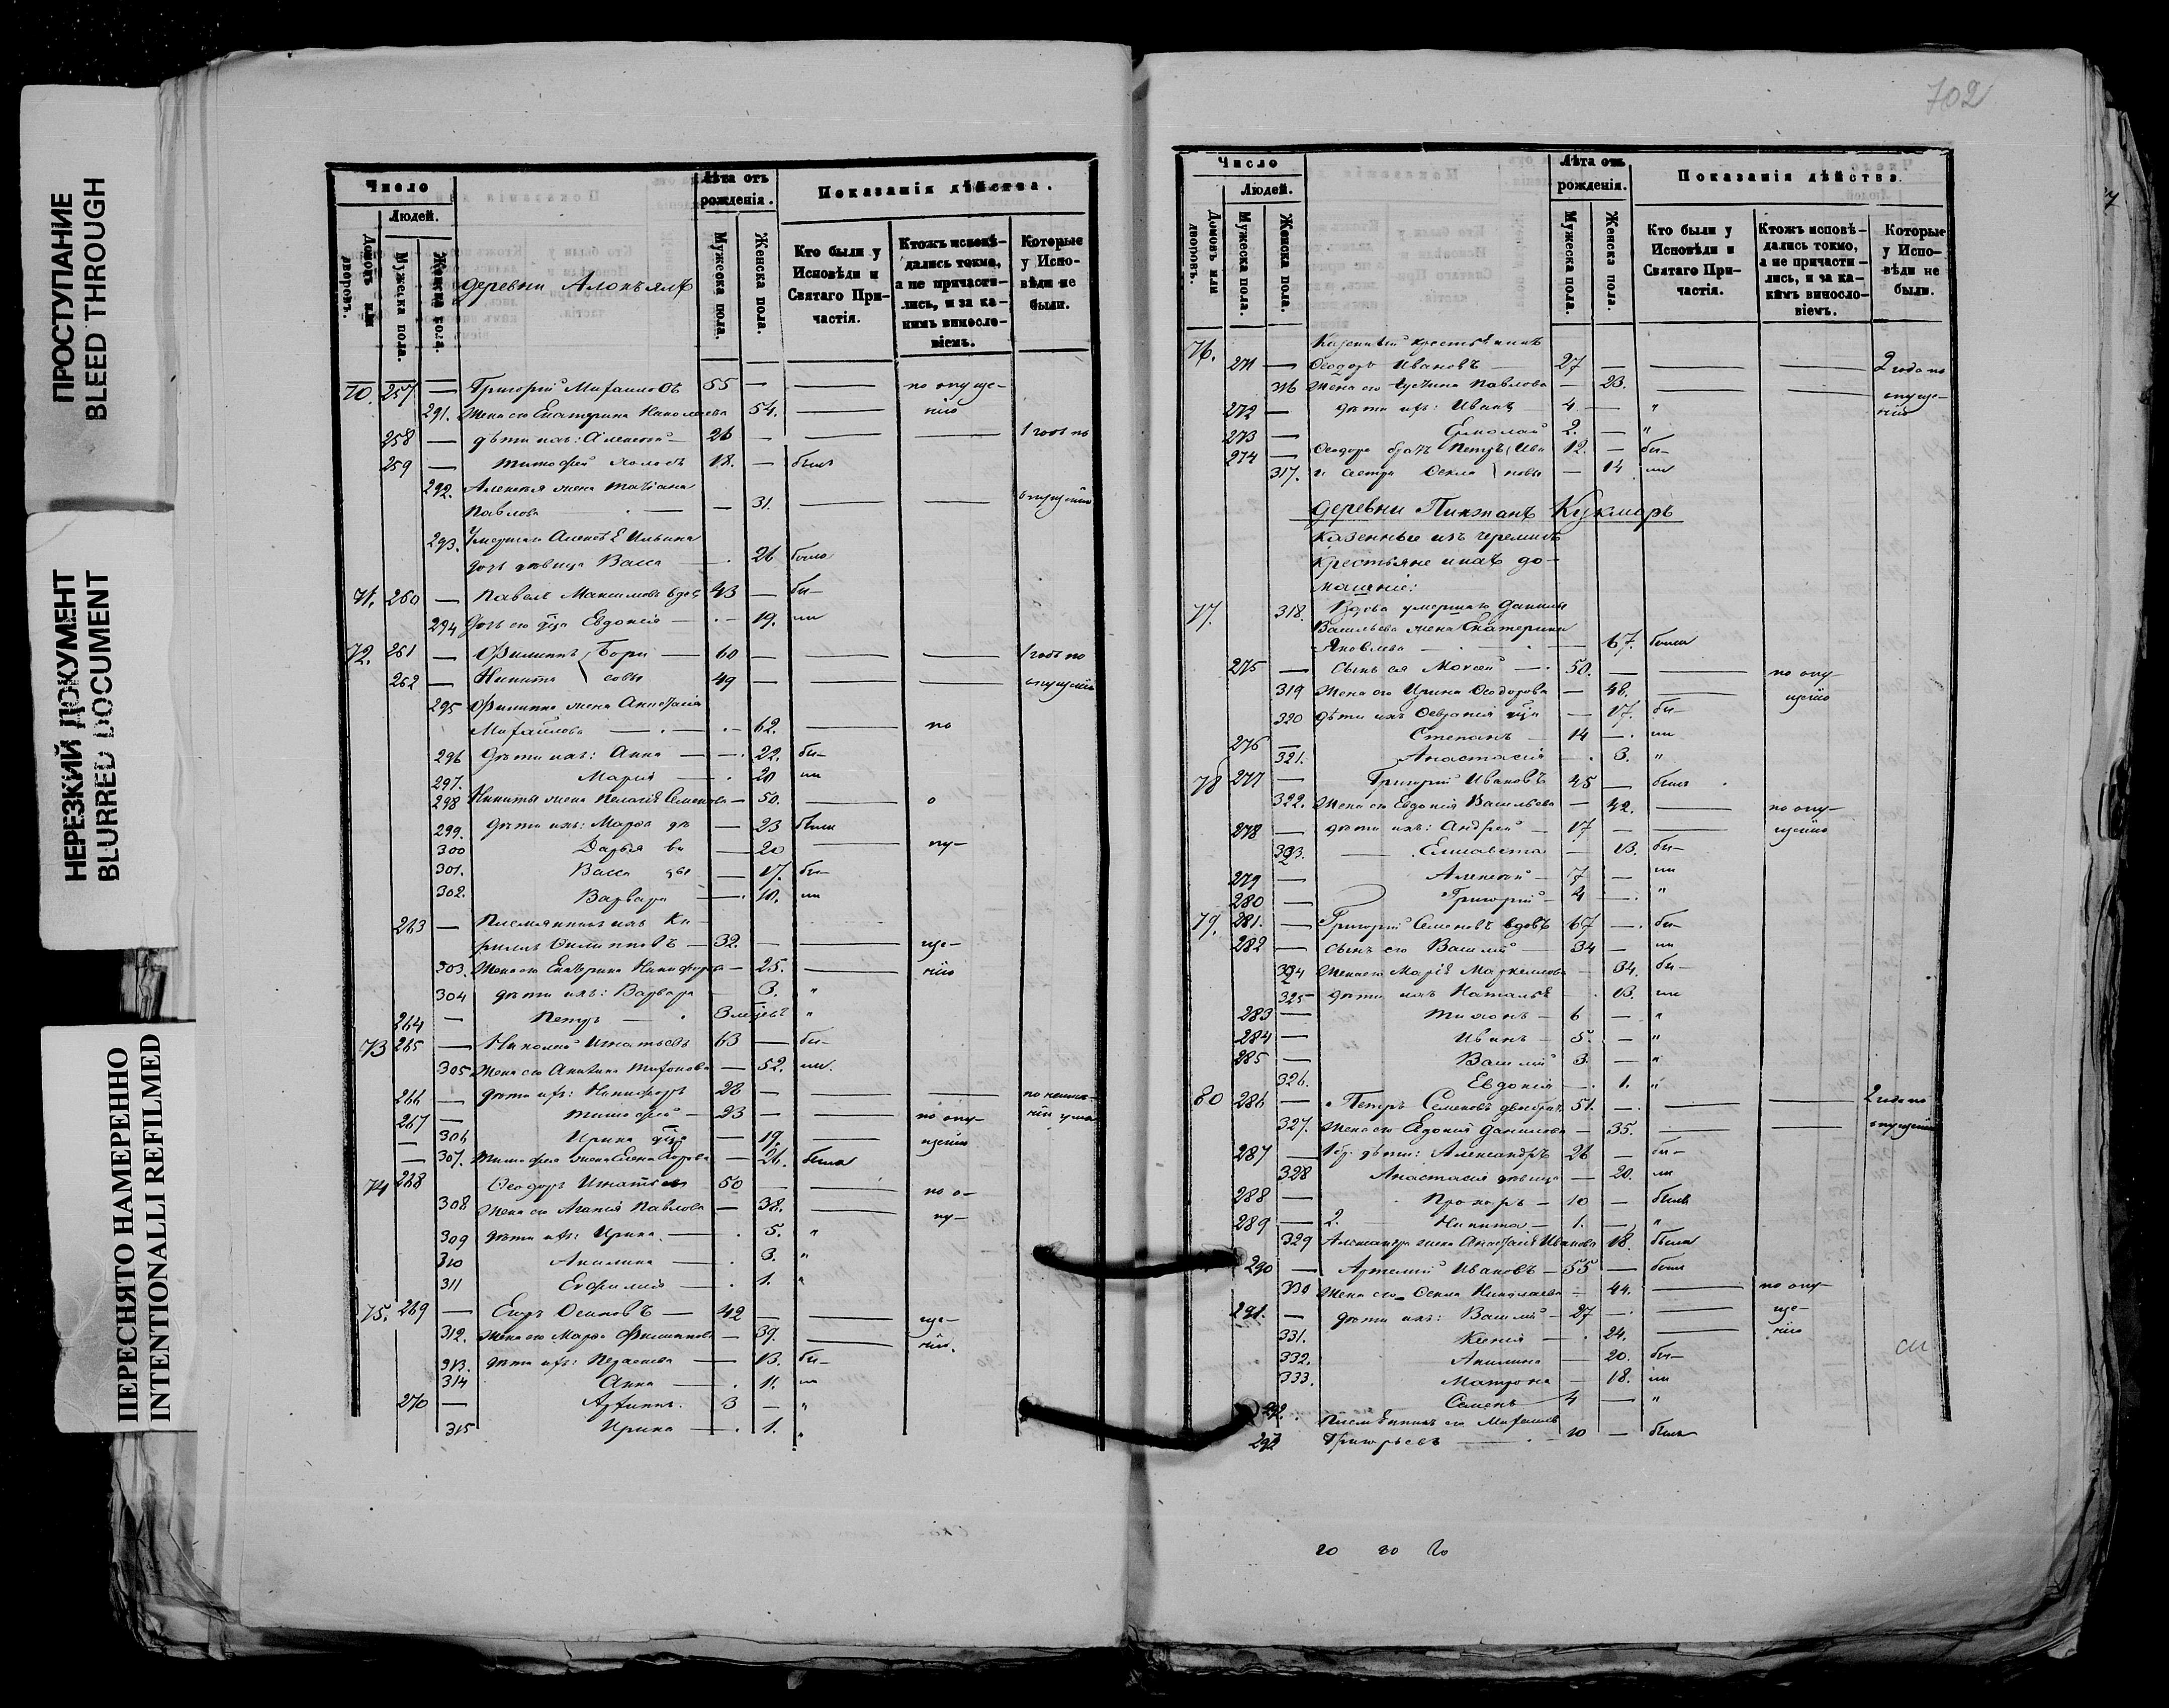 ПРОСТУПАНИЕ
BLEED THROUGH
НЕРЕЗКИЙ ДОКУМЕНТ
BLURRED DOCUMENT
ПЕРЕСНЯТО НАМЕРЕННО
INTENTIONALLI REFILMED
Число
Людей.
Домовъ или дворовъ.
Мужеска пола.
Женска пола.
деревни
Лѣта отъ рожденія.
Мужеска пола.
Женска пола.
Показанія дѣйства.
Кто были у Исповѣди и Святаго Причастія.
Ктожъ исповѣдались токмо, а не причастились, и за какимъ винословіемъ.
Которые у Исповѣди не были.
70. 257 — Григорій 55 — — по опуще-
291. Жена его Екатерина 54. — нію
258 — дѣти ихъ: Алексѣй — 26 — — — 1 годъ по
259 — Тимофей 18. — былъ
292. Алексѣя жена Татіана
Павлова — — 31. — — опущенію
293. Умершаго Алексѣя Ильина
дочь дѣвица Васса — 26 была
71. 260 — Павелъ Максимовъ вдов 43 — бы-
294 дочь его Евдокія — 19. ли
72. 261 — Филиппъ Бори- 60 — — — 1 годъ по
262 — Никита совы 49 — — — опущенію
295 Филиппа жена Анастасія
Михайлова — — 62. — по
296 дѣти ихъ: Анна — 22. бы-
297. Марія — 20 ли
298 Никиты жена Пелагія Семенова — 50. — о
299. дѣти ихъ: Марѳа дѣ — 23 была
300 Дарья ви — 20 — пу-
301. Васса цы — 17. бы-
302. Варвара — 10. ли
263 — Племянникъ ихъ Ки-
риллъ 32. — — ще-
303. Жена его Екатерина — 25. — нію
304 дѣти ихъ: Варвара 3. "
264 — Петръ — 3 "
73 265 — Николай Игнатьевъ 63 — бы-
305 Жена его — 52. ли.
266 — дѣти ихъ: Никифоръ 28 — — — по
267 — Тимофей — 23 — по опу- ума
306 Ирина — 19. — щенію
307. Тимофея жена Елена — 26. была
74 268 Ѳеодоръ Игнатьевъ 50 — — по о-
308 Жена его Агапія Павлова — 38. — пу-
309 дѣти ихъ: Ирина — 5. "
310 Акилина — 3. "
311 Евфимія — 1. "
75. 269 — Егоръ Осиповъ — 42 — — ще-
312. Жена его Марѳа Филиппова — 39. — нію.
313. дѣти ихъ: — 13. бы-
314 Анна — 11. ли
270 — 3 — "
315 Ирина — 1. "
702
Число
Людей.
Домовъ или дворовъ.
Мужеска пола.
Женска пола.
Лѣта отъ рожденія.
Мужеска пола.
Женска пола.
Показанія дѣйства.
Кто были у Исповѣди и Святаго Причастія.
Ктожъ исповѣдались токмо, а не причастились, и за какимъ винословіемъ.
Которые у Исповѣди не были.
76. Казенный крестьянинъ
271 — Ѳеодоръ Ивановъ 27 — — — 2 года по
316 Жена его Павлова — 23. — — опуще-
272 — дѣти ихъ: Иванъ — 4 — " нію
273 — Ермолай 2. — "
274 — Ѳеодора братъ Петръ Ива 12. — бы-
317. и сестра Ѳекла новы — 14. ли
деревни Кукмаръ
Казенные изъ черемисъ
крестьяне и ихъ до-
машніе:
77. 318. Вдова умершаго Данилы
Васильева жена Екатерина
Яковлева — — 67. была
275 — сынъ ея Моисей — 50. — по опу-
319 Жена его Ирина Ѳеодорова — 48. — щенію
320 дѣти ихъ — 17. бы-
276 — Степанъ — 14 — ли
321. Анастасія — 3. "
78 277 — Григорій Ивановъ 45 — былъ
322. Жена его Евдокія Васильева — 42. — по опу-
278 — дѣти ихъ: Андрей — 17 — — щенію
323. — Елисавета — 13. бы-
279 — Алексѣй — 7 — ли
280 — Григорій — 4 — "
79. 281. — Григорій Семеновъ вдовъ 67 — бы-
282 — сынъ его Василій 34 — ли
324 Жена его Марія Маркеллова — 34. бы-
325 дѣти ихъ Наталья — 13. ли
283 — Тихонъ — 6 — "
284 — Иванъ — 5. — "
285 — Василій 3. — "
326. Евдокія — 1. "
80 286 — Петръ Семеновъ 51. — — — 2 года по
327. Жена его Евдокія Данилова — 35. — — опущенію
287 — дѣти: Александръ 26 — бы-
328 Анастасія дѣвица — 20. ли
288 — Прохоръ — 10 — былъ
289 — 2. Никита — 1. — "
329 Александра жена Анастасія Иванова 18. была
290 — Артемій Ивановъ — 55 — былъ
330 Жена его Ѳекла Николаева — 44. — по опу-
291. — дѣти ихъ: Василій — 27 — — ще-
331. Ксенія — 24. — нію
332. Акилина — 20. бы-
333. Матрона — 18. ли
292. Семенъ 4 — "
Племянникъ его Михаилъ
293 Григорьевъ — 10 — былъ